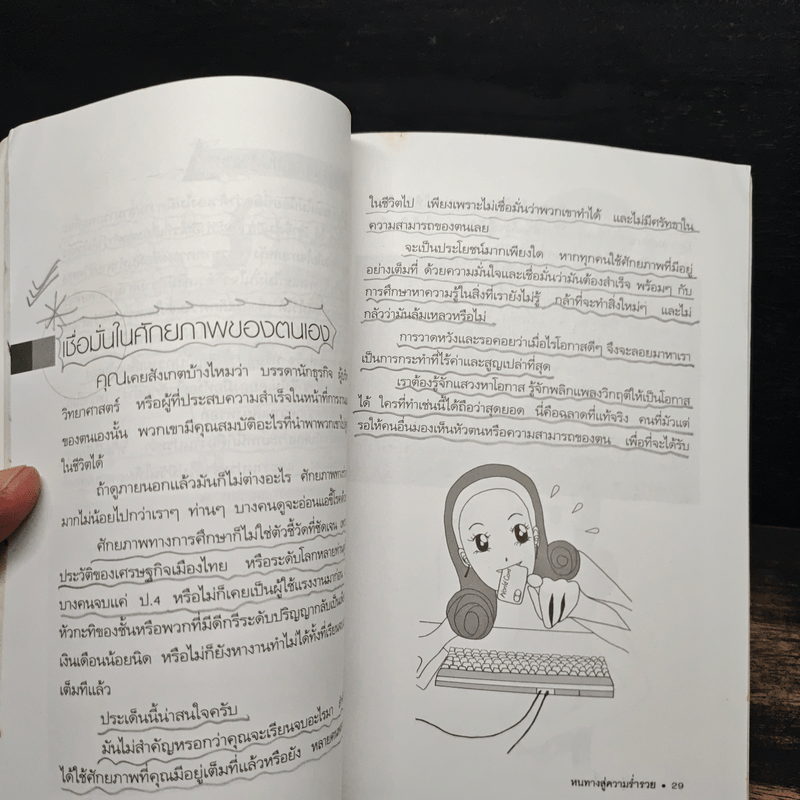 เชื่อมั่นในศักยภาพของตนเอง
คุณเคยสังเกตบ้างไหมว่า บรรดานักธุรกิจ
วิทยาศาสตร์ หรือผู้ที่ประสบความสำเร็จในหน้าที่การงาน
ของตนเองนั้น พวกเขามีคุณสมบัติอะไรที่นำพาพวกเขา
ในชีวิตได้
ถ้าดูภายนอกแล้วมันก็ไม่ต่างอะไร ศักยภาพทาง
มากไม่น้อยไปกว่าเราๆ ท่านๆ บางคนดูจะอ่อนแอขี้โรค
ศักยภาพทางการศึกษาก็ไม่ใช่ตัวชี้วัดที่ชัดเจน
ประวัติของเศรษฐกิจเมืองไทย หรือระดับโลกหลายท่าน
บางคนจบแค่ ป.4 หรือไม่ก็เคยเป็นผู้ใช้แรงงานมาก่อน
หัวกะทิของชั้นหรือพวกที่มีดีกรีระดับปริญญากลับเป็น
เงินเดือนน้อยนิด หรือไม่ก็ยังหางานทำไม่ได้ทั้งที่เรียน
เต็มทีแล้ว
ประเด็นนี้น่าสนใจครับ
มันไม่สำคัญหรอกว่าคุณจะเรียนจบอะไรมา
ได้ใช้ศักยภาพที่คุณมีอยู่เต็มที่แล้วหรือยัง หลายคน
ในชีวิตไป เพียงเพราะไม่เชื่อมั่นว่าพวกเขาทำได้ และไม่มีศรัทธาใน
ความสามารถของตนเลย
จะเป็นประโยชน์มากเพียงใด หากทุกคนใช้ศักยภาพที่มีอยู่
อย่างเต็มที่ ด้วยความมั่นใจและเชื่อมั่นว่ามันต้องสำเร็จ พร้อมๆ กับ
การศึกษาหาความรู้ในสิ่งที่เรายังไม่รู้ กล้าที่จะทำสิ่งใหม่ๆ และไม่
กลัวว่ามันล้มเหลวหรือไม่
การวาดหวังและรอคอยว่าเมื่อไรโอกาสดีๆ จึงจะลอยมาหาเรา
เป็นการกระทำที่ไร้ค่าและสูญเปล่าที่สุด
เราต้องรู้จักแสวงหาโอกาส รู้จักพลิกแพลงวิกฤติให้เป็นโอกาส
ได้ ใครที่ทำเช่นนี้ได้ถือว่าสุดยอด นี่คือฉลาดที่แท้จริง คนที่มัวแต่
รอให้คนอื่นมองเห็นหัวตนหรือความสามารถของตน เพื่อที่จะได้รับ
หนทางสู่ความร่ำรวย • 29